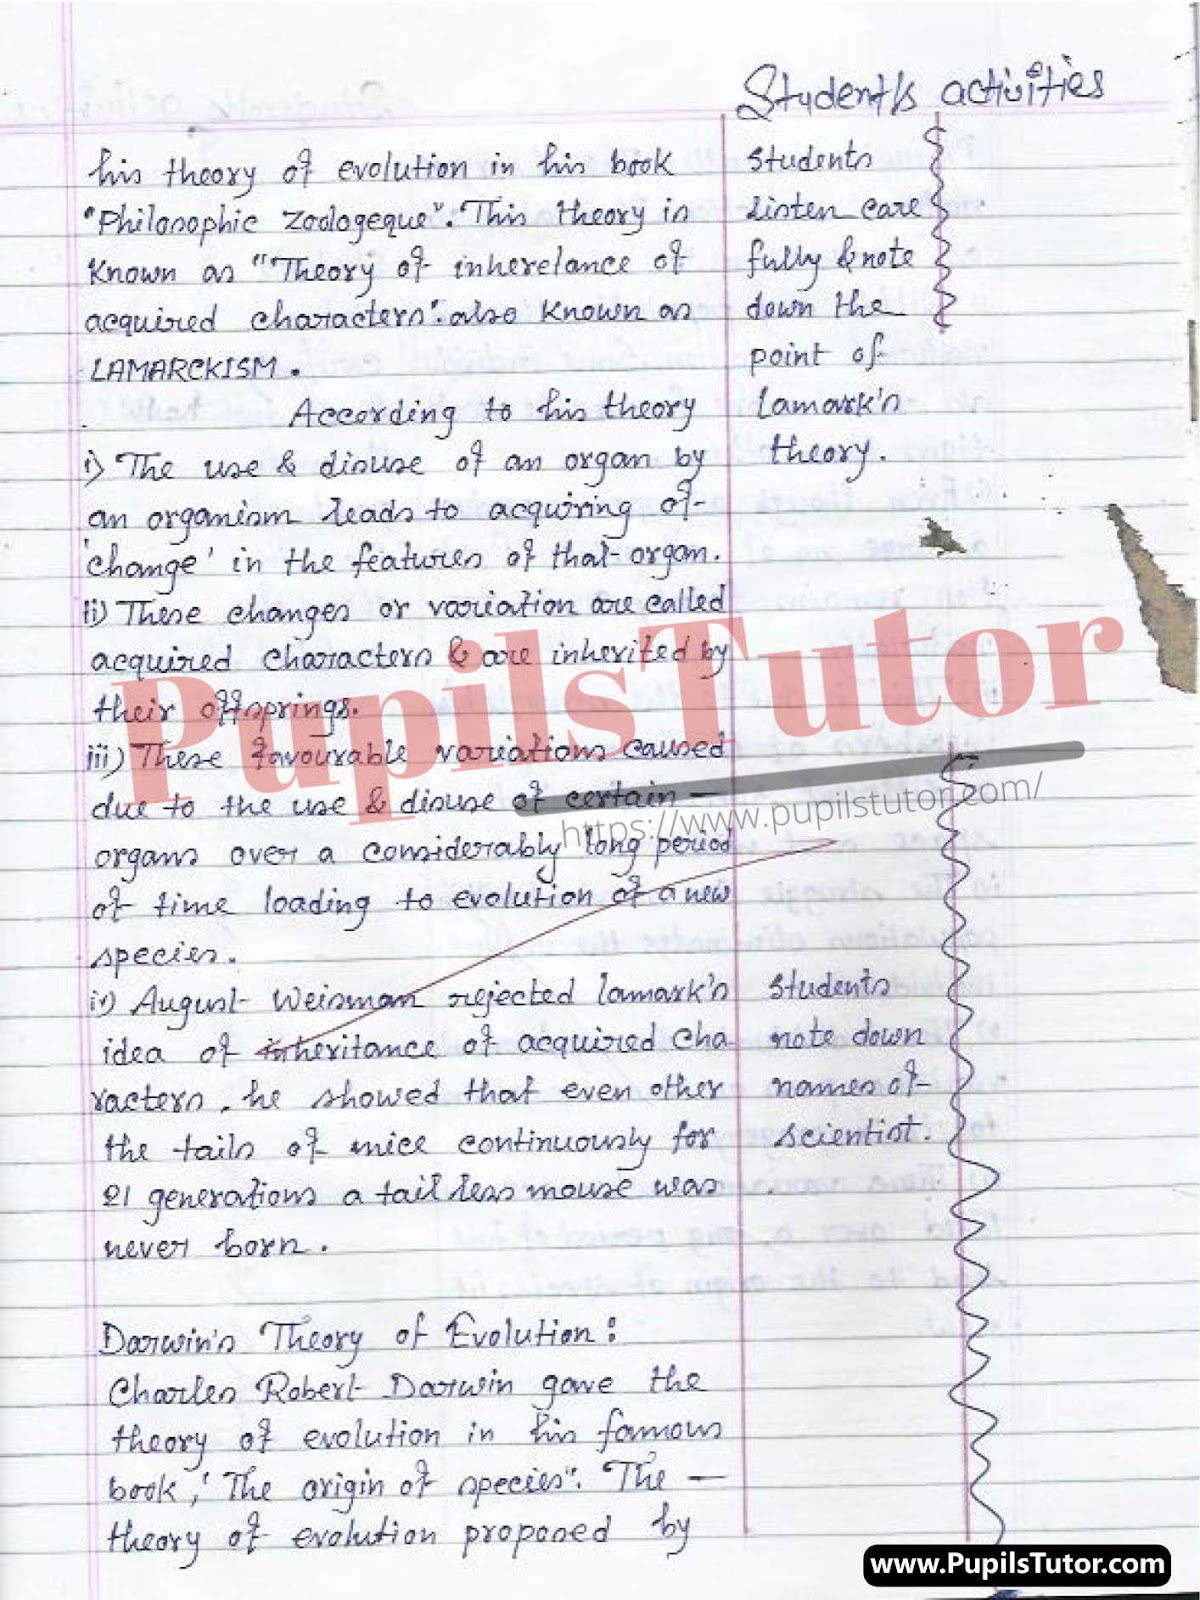 Student's activities
his theory of evolution in his book
"Philosophic Zoologeque". This theory is
Known as "Theory of inherelance of
acquired characters". also known as
LAMARCKISM.
According to his theory
i) The use & disuse of an organ by
an organism leads to acquiring of
'change' in the features of that organ.
ii) These changes or variation are called
acquired characters & are inherited by
their offsprings.
iii) These favourable variations caused
due to the use & disuse of certain —
organs over a considerably long period
of time loading to evolution of a new
species.
iv) August Weisman rejected lamark's
idea of inheritance of acquired cha
racters. he showed that even other
the tails of mice continuously for
21 generations a tail less mouse was
never born.
Darwin's Theory of Evolution:
Charles Robert Darwin gave the
theory of evolution in his famous
book, 'The origin of species". The —
theory of evolution proposed by
Students
listen care
fully & note
down the
point of
lamark's
theory.
Students
note down
names of
scientist.
PupilsTutor
https://www.pupilstutor.com/
www.PupilsTutor.com